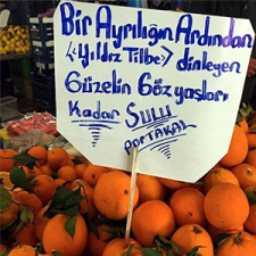 Bir Ayrılığın Ardından
<Yıldız Tilbe> dinleyen
Güzelin Göz yaşları
Kadar SULU
PORTAKAL